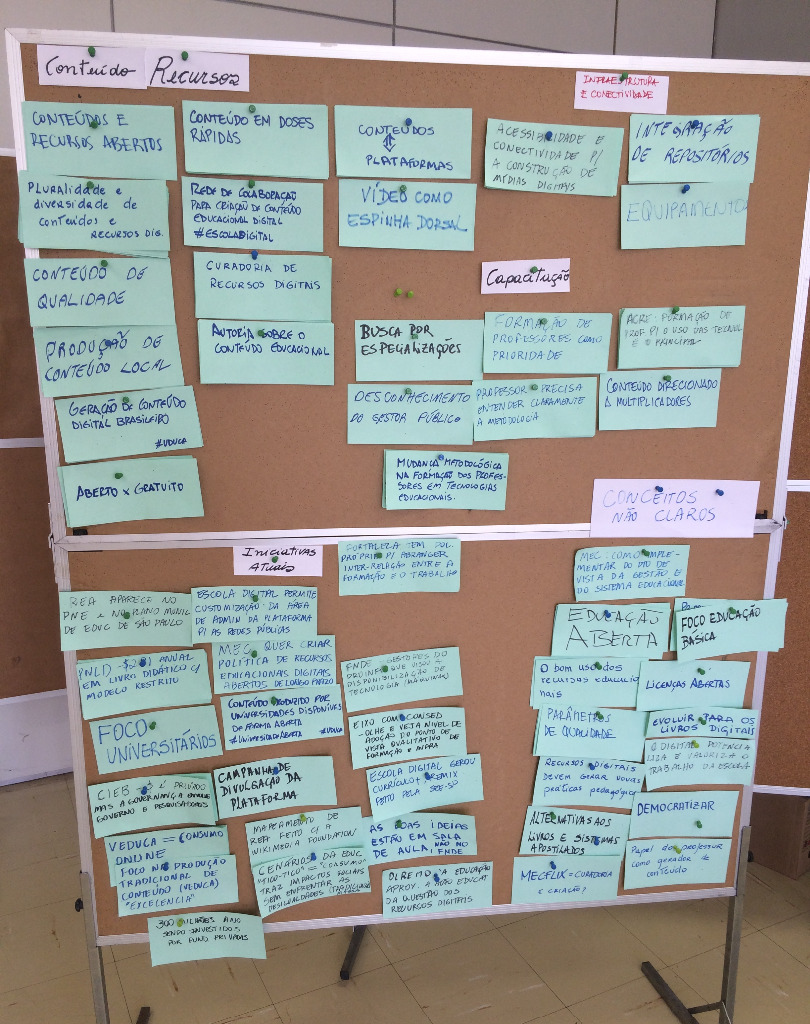 Conteúdo
Recursos
CONTEÚDOS E
RECURSOS ABERTOS
Pluralidade e
diversidade de
conteúdos e
RECURSOS DIG.
CONTEÚDO DE
QUALIDADE
PRODUÇÃO DE
CONTEÚDO LOCAL
GERAÇÃO DE CONTEÚDO
DIGITAL BRASILEIRO
#VDUCA
ABERTO x GRATUITO
CONTEÚDO EM DOSES
RÁPIDAS
REDE DE COLABORAÇÃO
PARA CRIAÇÃO DE CONTEÚDO
EDUCACIONAL DIGITAL
#ESCOLADIGITAL
CURADORIA DE
RECURSOS DIGITAIS
AUTORIA SOBRE O
CONTEÚDO EDUCACIONAL
CONTEÚDOS
PLATAFORMAS
VÍDEO COMO
ESPINHA DORSAL
INFRAESTRUTURA
E CONECTIVIDADE
ACESSIBILIDADE E
CONECTIVIDADE P/
A CONSTRUÇÃO DE
MÍDIAS DIGITAIS
INTEGRAÇÃO
DE REPOSITÓRIOS
EQUIPAMENTO
Capacitação
BUSCA POR
ESPECIALIZAÇÕES
FORMAÇÃO DE
PROFESSORES COMO
PRIORIDADE
ACRE: FORMAÇÃO DE
PROF. P/ O USO DAS TECNOL
É O PRINCIPAL
DESCONHECIMENTO
DO GESTOR PÚBLICO
PROFESSOR PRECISA
ENTENDER CLARAMENTE
A METODOLOGIA
CONTEÚDO DIRECIONADO
A MULTIPLICADORES
MUDANÇA METODOLÓGICA
NA FORMAÇÃO DOS PROFES-
SORES EM TECNOLOGIAS
EDUCACIONAIS.
CONCEITOS
NÃO CLAROS
INICIATIVAS
ATUAIS
REA APARECE NO
PNE E NO PLANO MUNIC.
DE EDUC DE SÃO PAULO
PNLD ANUAL
EM LIVRO DIDÁTICO C/
MODELO RESTRITO
FOCO
UNIVERSITÁRIOS
CIEB É PRIVADO
MAS A GOVERNANÇA ENVOLVE
GOVERNO E PESQUISADORES
VEDUCA = CONSUMO
ONLINE
FOCO NA PRODUÇÃO
TRADICIONAL DE
CONTEÚDO (VEDUCA)
"EXCELENCIA"
300 MILHÕES ANO
SENDO INVESTIDOS
POR FUND PRIVADAS
ESCOLA DIGITAL PERMITE
CUSTOMIZAÇÃO: DA ÁREA
DE ADMIN DA PLATAFORMA
P/ AS REDES PÚBLICAS
MEC QUER CRIAR
POLÍTICA DE RECURSOS
EDUCACIONAIS DIGITAIS
ABERTOS DE LONGO PRAZO
CONTEÚDO PRODUZIDO POR
UNIVERSIDADES DISPONÍVEIS
DE FORMA ABERTA
#UNIVERSIDADEABERTA
#VDUCA
CAMPANHA DE
DIVULGAÇÃO DA
PLATAFORMA
MAPEAMENTO DE
REA FEITO C/ A
WIKIMEDIA FOUNDATION
CENÁRIOS DA EDUC
TRAZ IMPACTOS SOCIAIS
SEM ENFRENTAR AS
DESIGUALDADES
FORTALEZA TEM POL.
PRÓPRIA P/ ABRANGER
INTER-RELAÇÃO ENTRE A
FORMAÇÃO E O TRABALHO
FNDE - GESTORES DO
PROINFO QUE VISOU A
DISPONIBILIZAÇÃO DE
TECNOLOGIA (MÁQUINAS)
EIXO COM CONSED
- OLHE E VEJA NÍVEL DE
ADOÇÃO DO PONTO DE
VISTA QUALITATIVO DE
FORMAÇÃO E INFRA
ESCOLA DIGITAL GEROU
CURRÍCULO+ REMIX
FEITO PELA SEE-SP
AS BOAS IDEIAS
ESTÃO EM SALA
DE AULA, NÃO NO
FNDE
A EDUCAÇÃO
APROX. A EDUCAT
DA QUESTÃO DOS
RECURSOS DIGITAIS
MEC: COMO IMPLE-
MENTAR DO PTO DE
VISTA DA GESTÃO E
DO SISTEMA EDUCACIONAL
EDUCAÇÃO
ABERTA
O bom uso dos
recursos educacio
nais
PARÂMETROS
DE QUALIDADE
RECURSOS DIGITAIS
DEVEM GERAR NOVAS
práticas pedagógicas
ALTERNATIVAS AOS
LIVROS E SISTEMAS
APOSTILADOS
MECFLIX = CURADORIA
E CRIAÇÃO?
FOCO EDUCAÇÃO
BÁSICA
LICENÇAS ABERTAS
EVOLUIR PARA OS
LIVROS DIGITAIS
O DIGITAL POTENCIA
LIZA E VALORIZA O
TRABALHO DA ESCOLA
DEMOCRATIZAR
Papel do professor
como gerador de
conteúdo